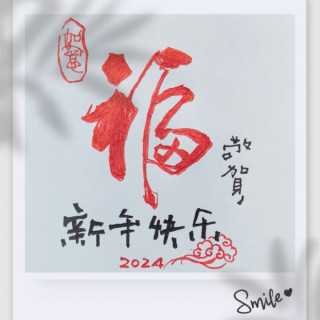 如意
福
敬賀
新年快乐
2024
Smile